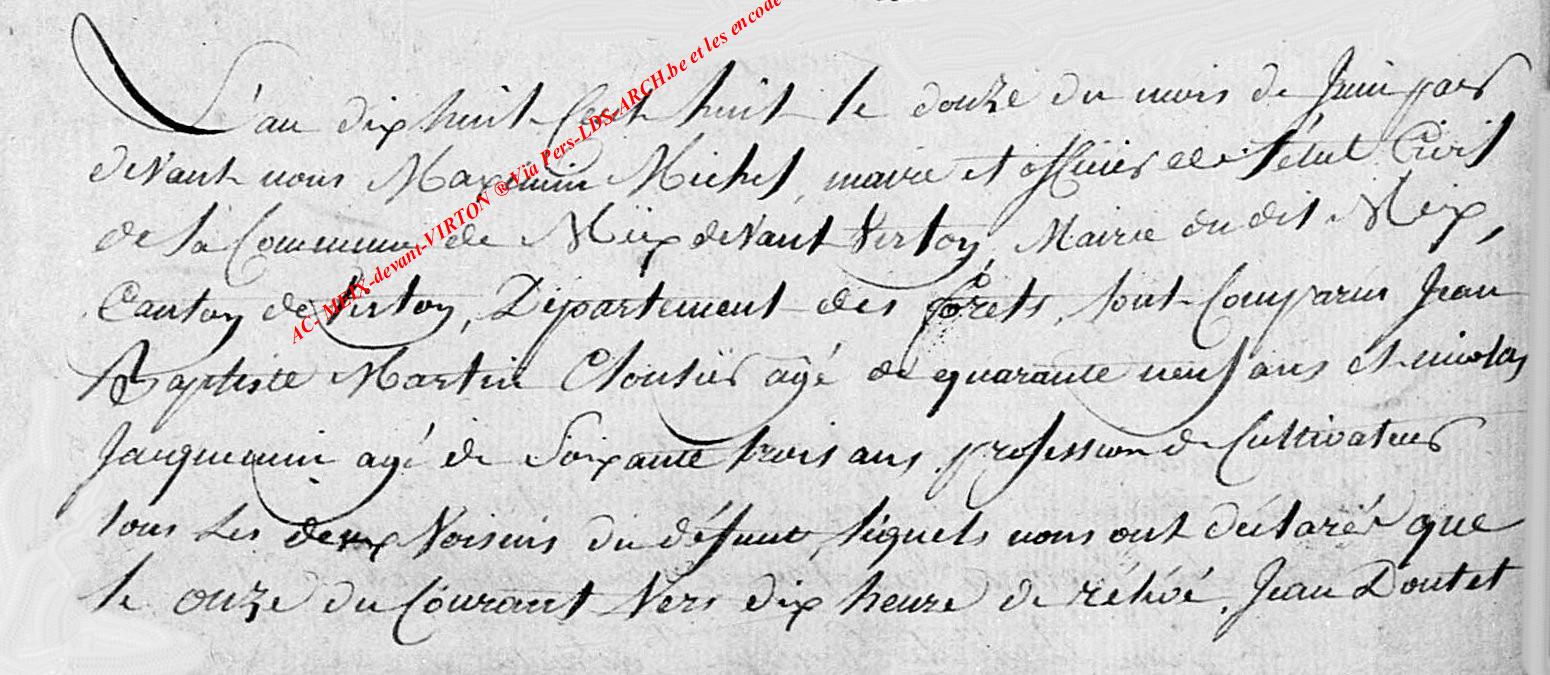 L'an dix huit Cent huit le douze du mois de Juin par
devant nous Maximin Michel, maire et officier de l'état Civil
de la Commune de Meix devant Virton, Mairie du dit Meix,
Canton de Virton, Département des forêts, sont Comparus Jean
Baptiste Martin Cloutier agé de quarante neuf ans et nicolas
Jacquemin agé de Soixante trois ans profession de Cultivateur
tous Les deux Voisins du défunt, lèquels nous ont déclarér que
le onze du Courant Vers dix heure de rélévé, Jean Doutet
AC-MEIX-devant-VIRTON ® Via Pers-LDS-ARCH.be et les encode